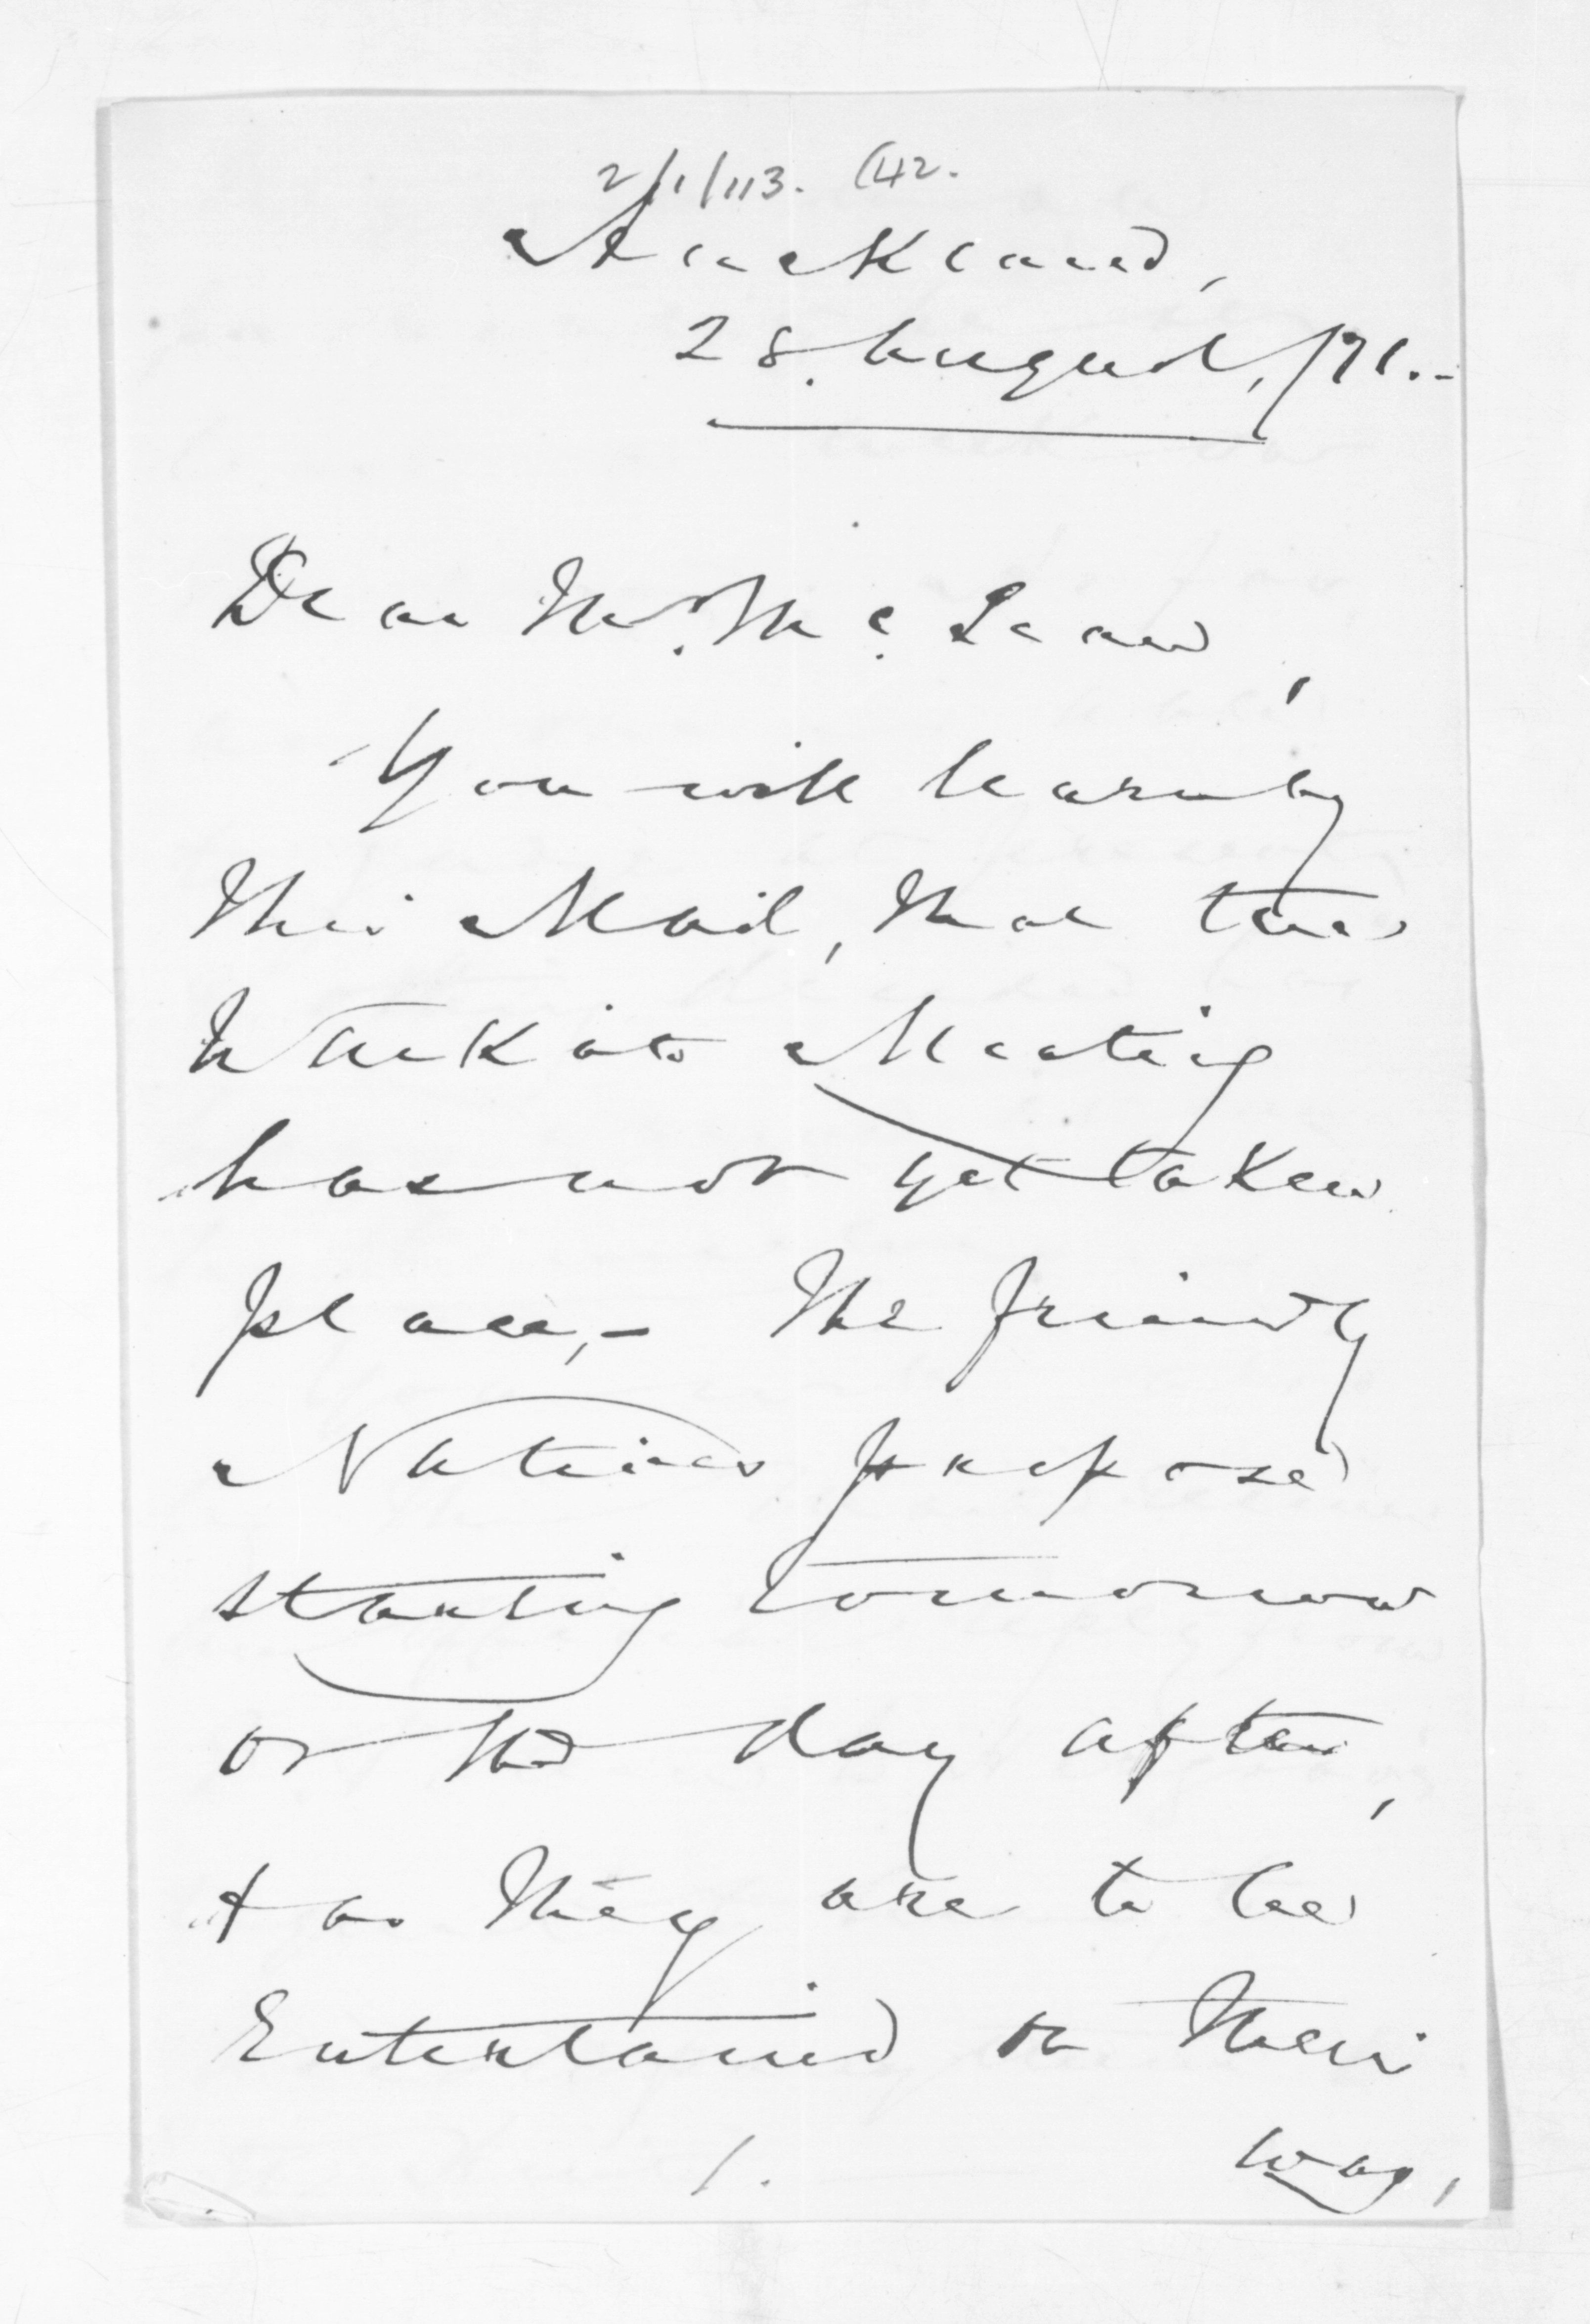 2/1/113. (42.
Auckland,
28. August, /71.-
Dear Mr. McLean,
You will learn by
this Mail, that the
Waikato Meeting
has not yet taken
place,- The friendly
Natives propose
starting tomorrow
or the day after,
& as they are to be
Entertained on their
1. way,